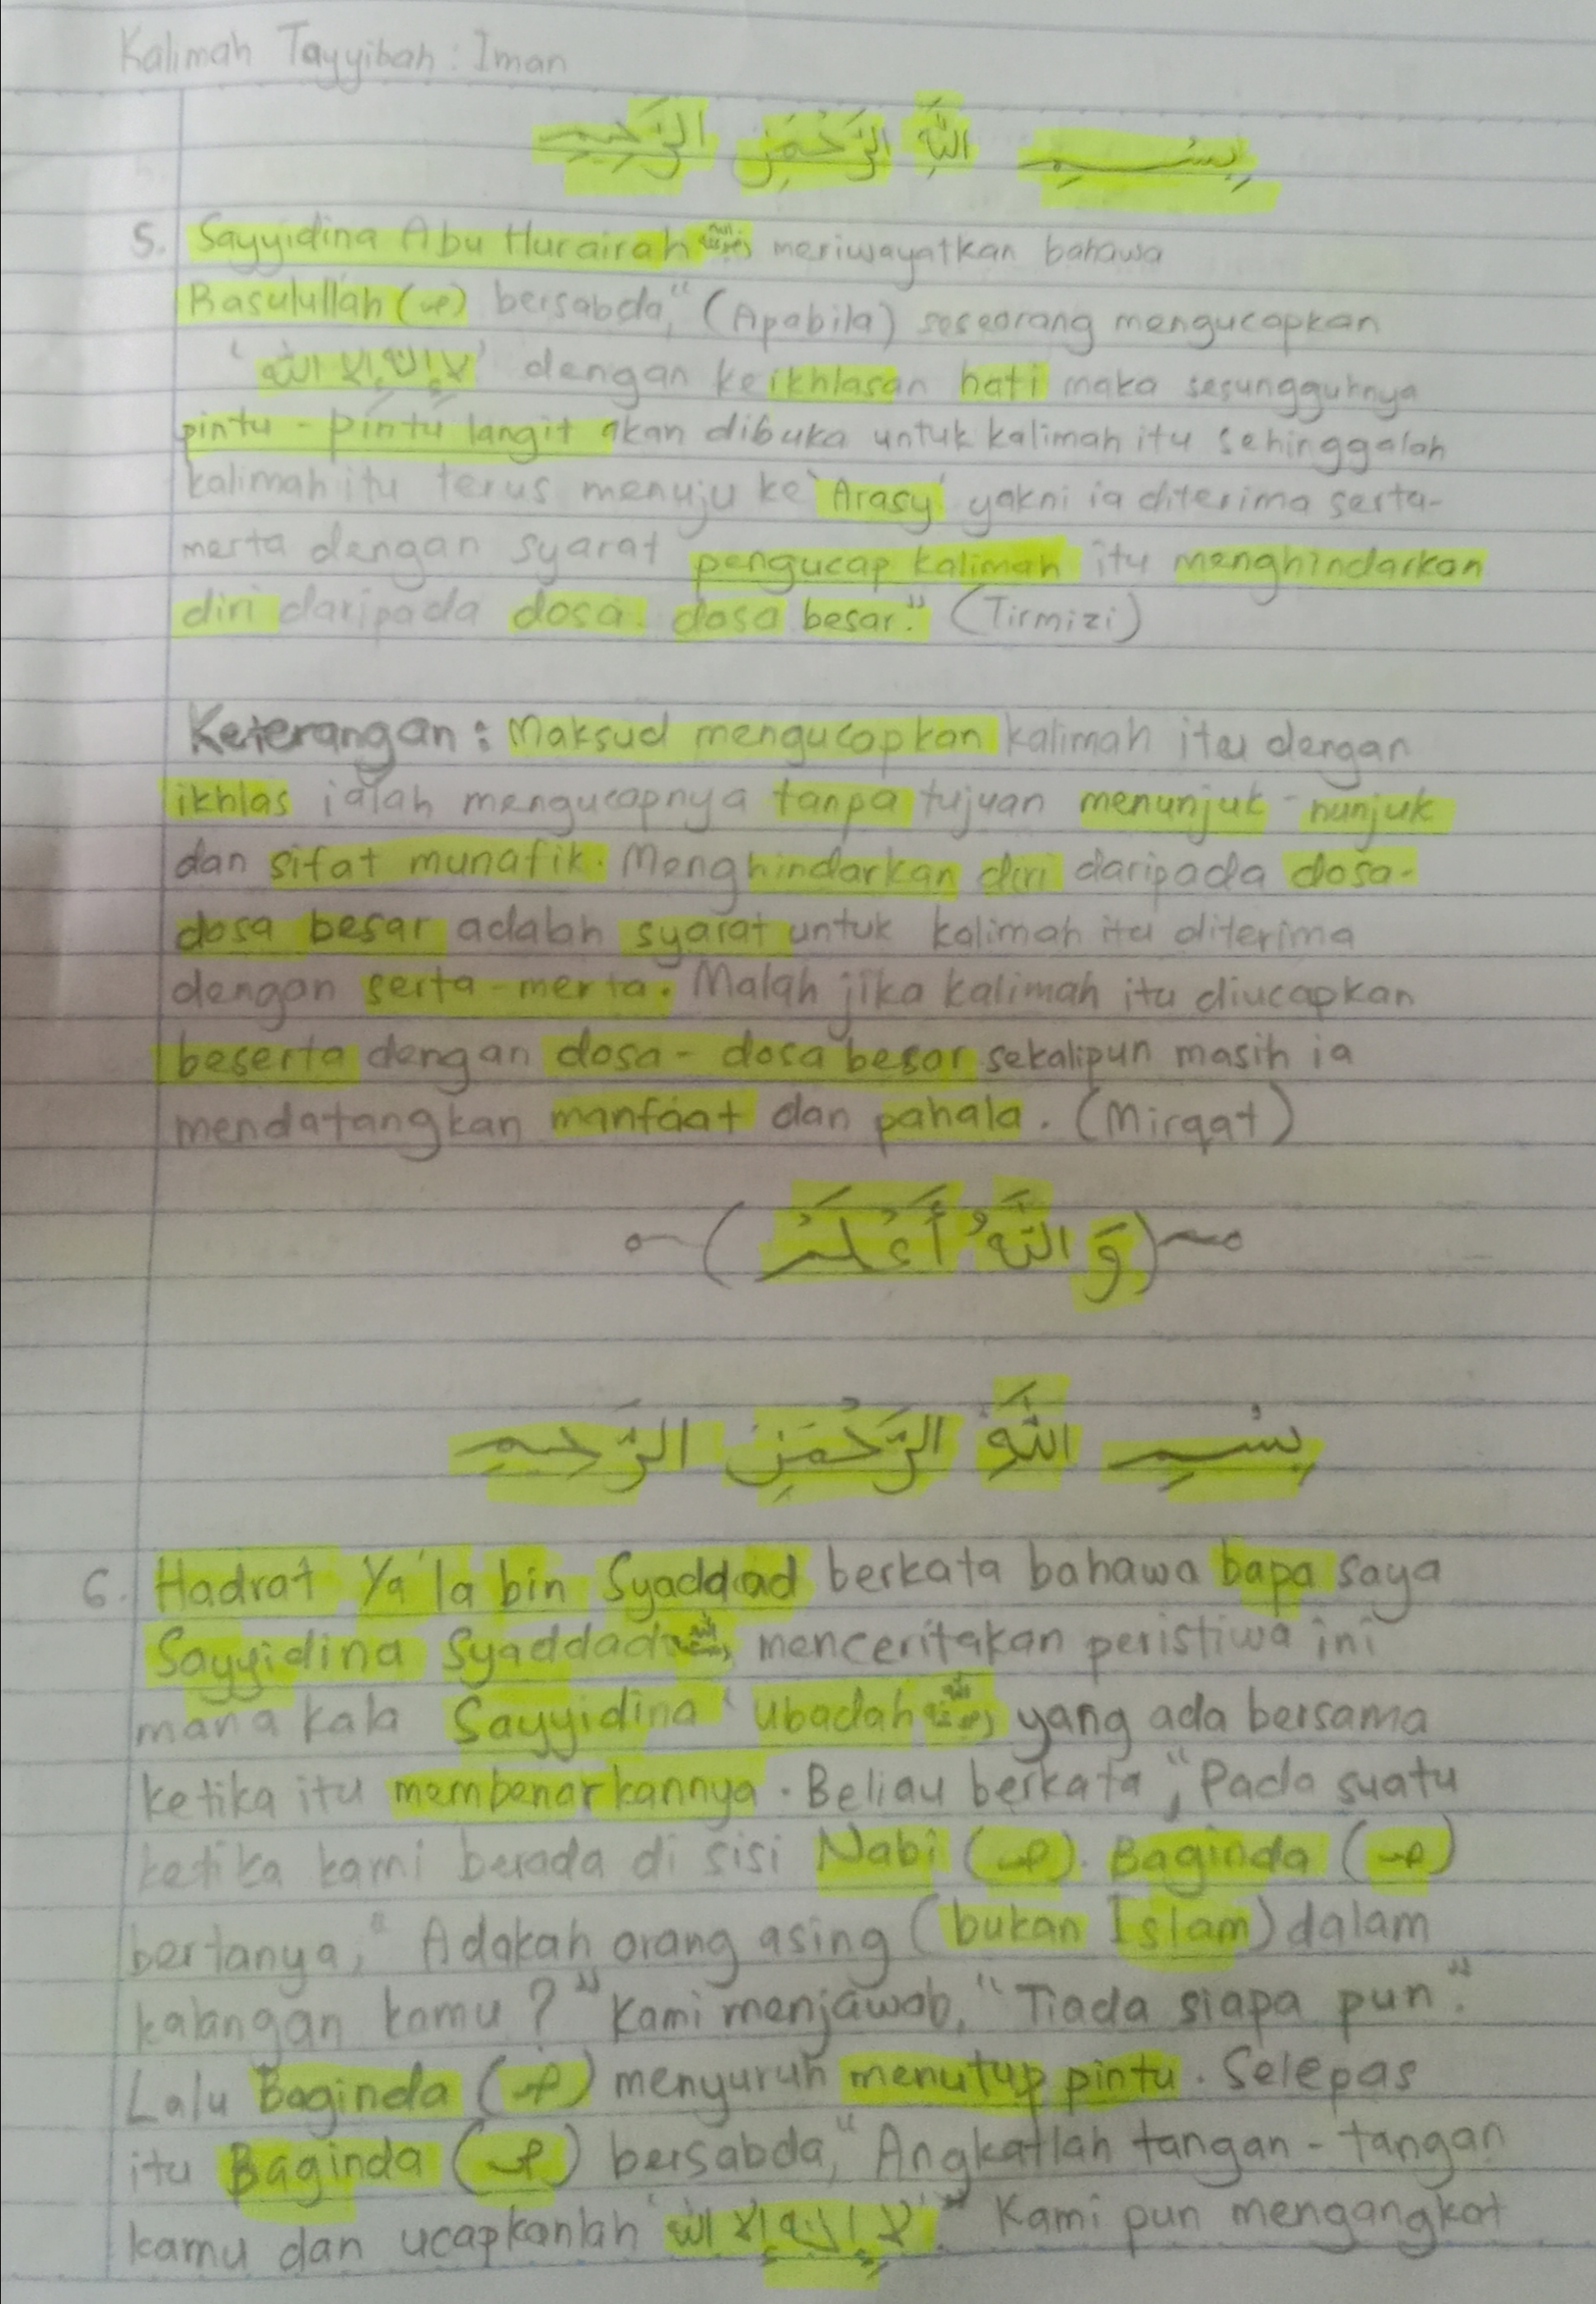 Kalimah Tayyibah : Iman
بِسْمِ اللَّهِ الرَّحْمَنِ الرَّحِيمِ
5. Sayyidina Abu Hurairah رضي الله عنه meriwayatkan bahawa
Rasulullah (ﷺ) bersabda, "(Apabila) seseorang mengucapkan
'لا إله إلا الله' dengan keikhlasan hati maka sesungguhnya
pintu - pintu langit akan dibuka untuk kalimah itu sehinggalah
kalimah itu terus menuju ke 'Arasy' yakni ia diterima serta-
merta dengan syarat pengucap kalimah itu menghindarkan
diri daripada dosa - dosa besar." (Tirmizi)
Keterangan : Maksud mengucapkan kalimah itu dengan
ikhlas ialah mengucapnya tanpa tujuan menunjuk - nunjuk
dan sifat munafik. Menghindarkan diri daripada dosa-
dosa besar adalah syarat untuk kalimah itu diterima
dengan serta - merta. Malah jika kalimah itu diucapkan
beserta dengan dosa - dosa besar sekalipun masih ia
mendatangkan manfaat dan pahala. (Mirqat)
(وَ اللَّهُ أَعْلَمُ)
بِسْمِ اللَّهِ الرَّحْمَنِ الرَّحِيمِ
6. Hadrat Ya'la bin Syaddad berkata bahawa bapa saya
Sayyidina Syaddad رضي الله عنه menceritakan peristiwa ini
mana kala Sayyidina 'Ubadah رضي الله عنه yang ada bersama
ketika itu membenarkannya. Beliau berkata, "Pada suatu
ketika kami berada di sisi Nabi (ﷺ). Baginda (ﷺ)
bertanya, "Adakah orang asing (bukan Islam) dalam
kalangan kamu?" Kami menjawab, "Tiada siapa pun."
Lalu Baginda (ﷺ) menyuruh menutup pintu. Selepas
itu Baginda (ﷺ) bersabda, "Angkatlah tangan - tangan
kamu dan ucapkanlah 'لا إله إلا الله'." Kami pun mengangkat